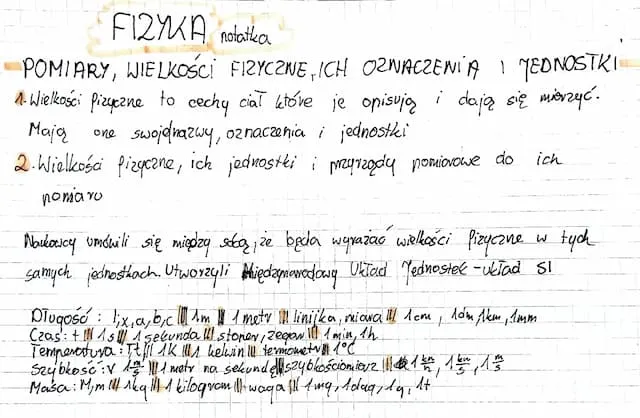 FIZYKA notatka
POMIARY, WIELKOŚCI FIZYCZNE, ICH OZNACZENIA I JEDNOSTKI
1. Wielkości fizyczne to cechy ciał które je opisują i dają się mierzyć.
Mają one swoje nazwy, oznaczenia i jednostki
2. Wielkości fizyczne, ich jednostki i przyrządy pomiarowe do ich
pomiaru
Naukowcy umówili się między sobą, że będą wyrażać wielkości fizyczne w tych
samych jednostkach. Utworzyli Międzynarodowy Układ Jednostek - układ SI
Długość: l, x, a, b, c ||| 1m ||| 1 metr ||| linijka, miara ||| 1cm, 1dm, 1km, 1mm
Czas: t ||| 1s ||| 1 sekunda ||| stoper, zegar ||| 1min, 1h
Temperatura: T t ||| 1K ||| 1 kelwin ||| termometr ||| 1°C
Szybkość: v 1 m/s ||| 1 metr na sekundę ||| szybkościomierz ||| 1 km/h, 1 km/s, 1 m/s
Masa: M, m ||| 1kg ||| 1 kilogram ||| waga ||| 1mg, 1dag, 1g, 1t